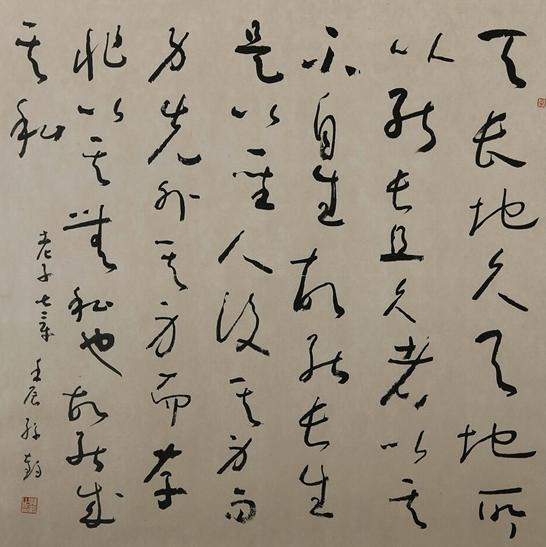 天长地久天地所
以能长且久者以其
不自生故能长生
是以聖人後其身而
身先外其身而存
非以其無私也故能成
其私
老子七章 壬辰 孫鶴